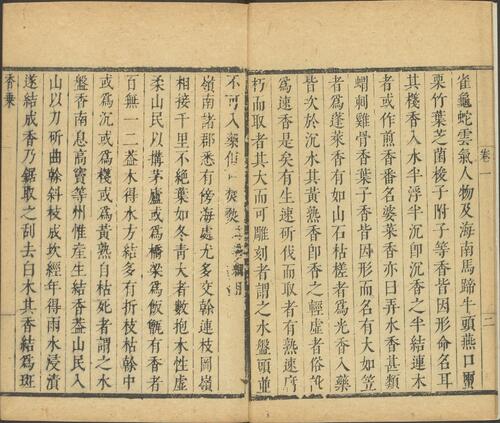 卷一
二
雀龜蛇雲氣人物及海南馬蹄牛頭燕口繭
栗竹葉芝菌梭子附子等香皆因形命名耳
其棧香入水半浮半沉卽沉香之半結連木
者或作煎香番名婆菜香亦曰弄水香甚類
蝟刺雞骨香葉子香皆因形而名有大如笠
者爲蓬萊香有如山石枯槎者爲光香入藥
皆次於沉水其黃熟香卽香之輕虛者俗訛
爲速香是矣有生速斫伐而取者有熟速腐
朽而取者其大而可雕刻者謂之水盤頭並
不可入藥但 焚爇
嶺南諸郡悉有傍海處尤多交幹連枝岡嶺
相接千里不絶葉如冬青大者數抱木性虛
柔山民以搆茅廬或爲橋梁爲飯甑有香者
百無一二葢木得水方結多有折枝枯幹中
或爲沉或爲棧或爲黃熟自枯死者謂之水
盤香南息高竇等州惟產生結香葢山民入
山以刀斫曲幹斜枝成坎經年得雨水浸漬
遂結成香乃鋸取之刮去白木其香結爲斑
香乘